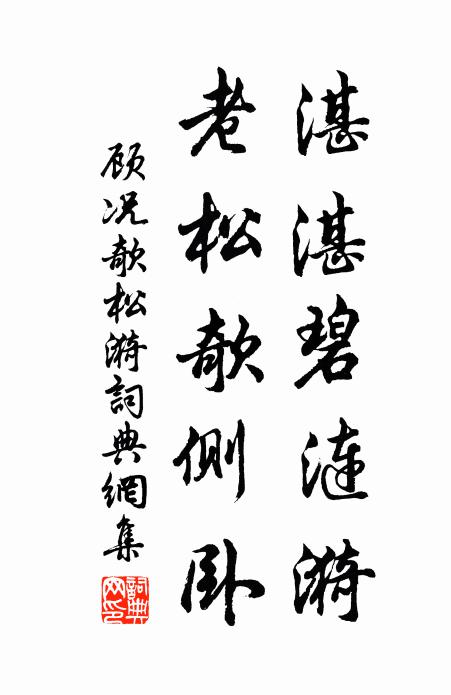 湛湛碧涟漪
老松欹侧卧
顾况欹松漪詞典網集
詞典网印